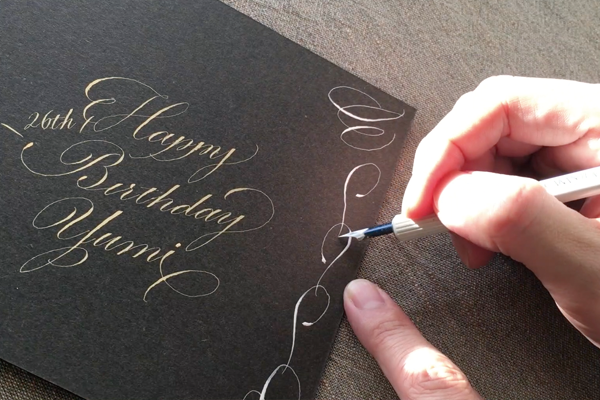 26th
Happy
Birthday
Yumi